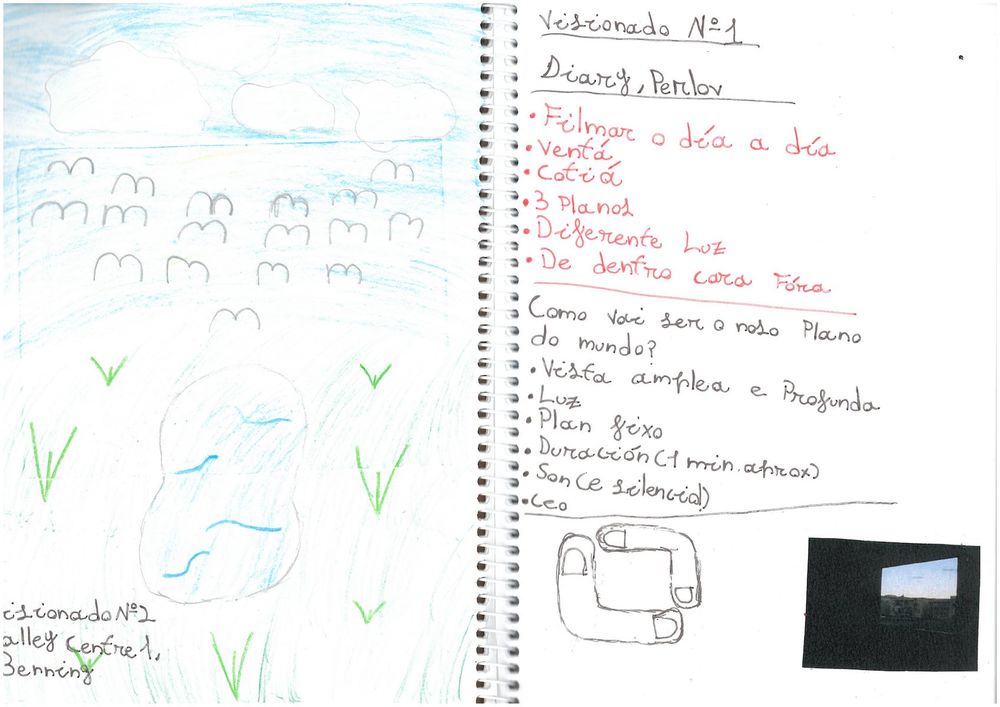 isionado Nº2
alley Centre 1,
Benning
Visionado Nº1
Diary, Perlov
• Filmar o día a día
• Ventá
• Cotiá
• 3 Planos
• Diferente Luz
• De dentro cara Fóra
Como vai ser o noso Plano
do mundo?
• Vista amplea e Profunda
• Luz
• Plan fixo
• Duración (1 min. aprox)
• Son (e silencio)
• Ceo